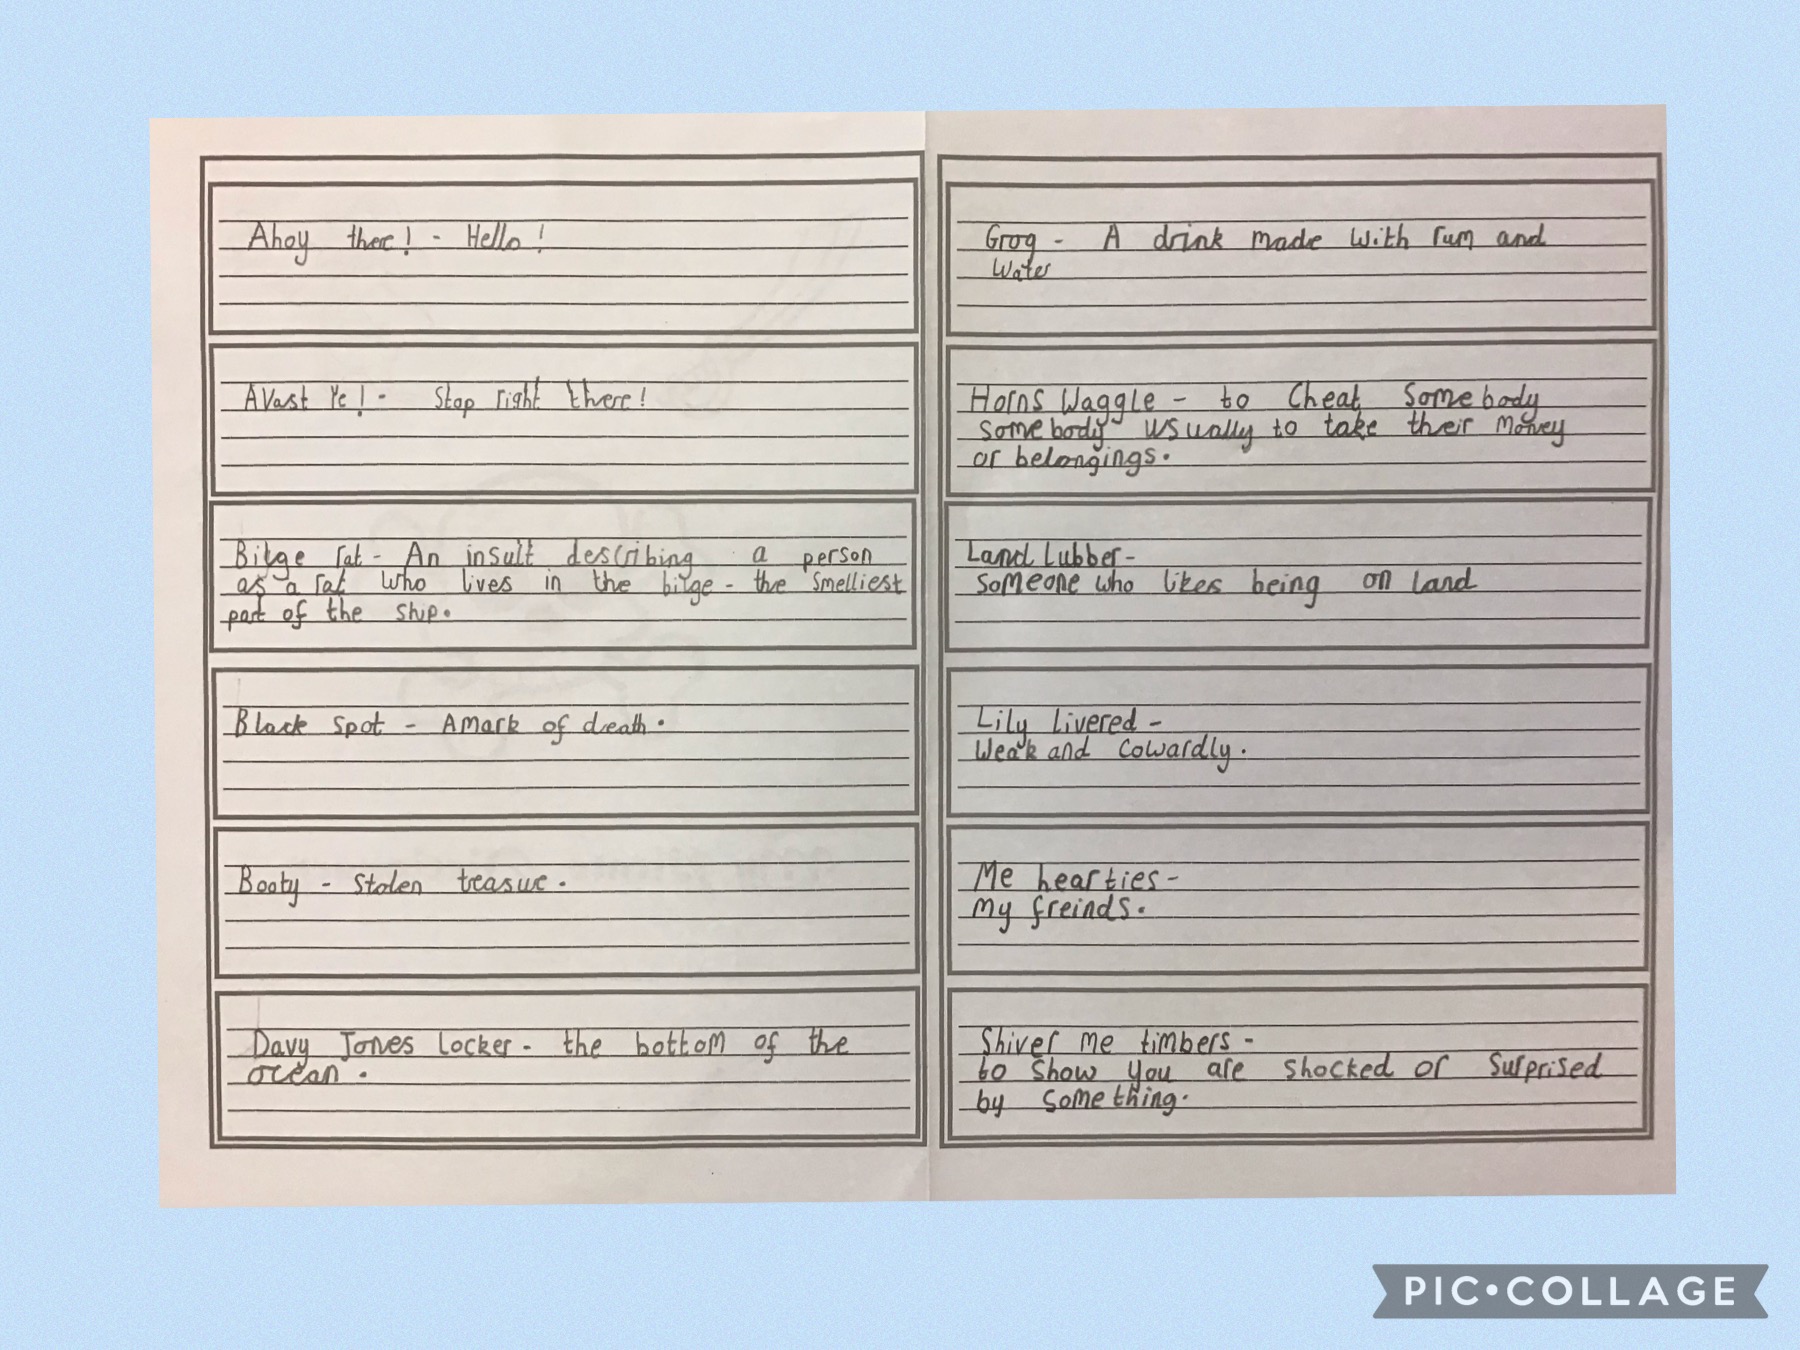 Ahoy there! - Hello!
Avast Ye! - Stop right there!
Bilge rat - An insult describing a person
as a rat who lives in the bilge - the smelliest
part of the ship.
Black spot - A mark of death.
Booty - Stolen teasue.
Davy Jones locker - the bottom of the
ocean.
Grog - A drink made with rum and
water
Horns Waggle - to Cheat Somebody
somebody usually to take their money
or belongings.
Land Lubber -
someone who likes being on land
Lily livered -
Weak and cowardly.
Me hearties -
My freinds.
Shiver me timbers -
to show you are shocked or surprised
by something.
PIC•COLLAGE